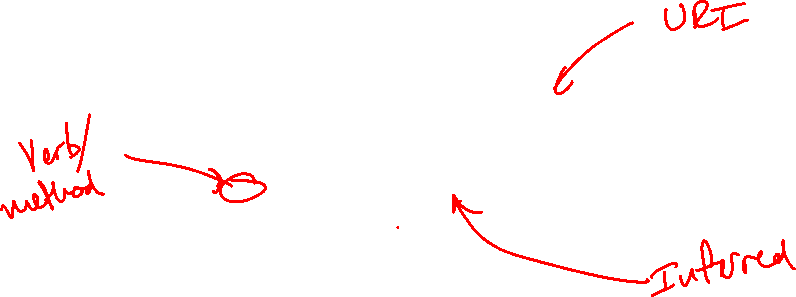 URI
Verb/
method
Inferred